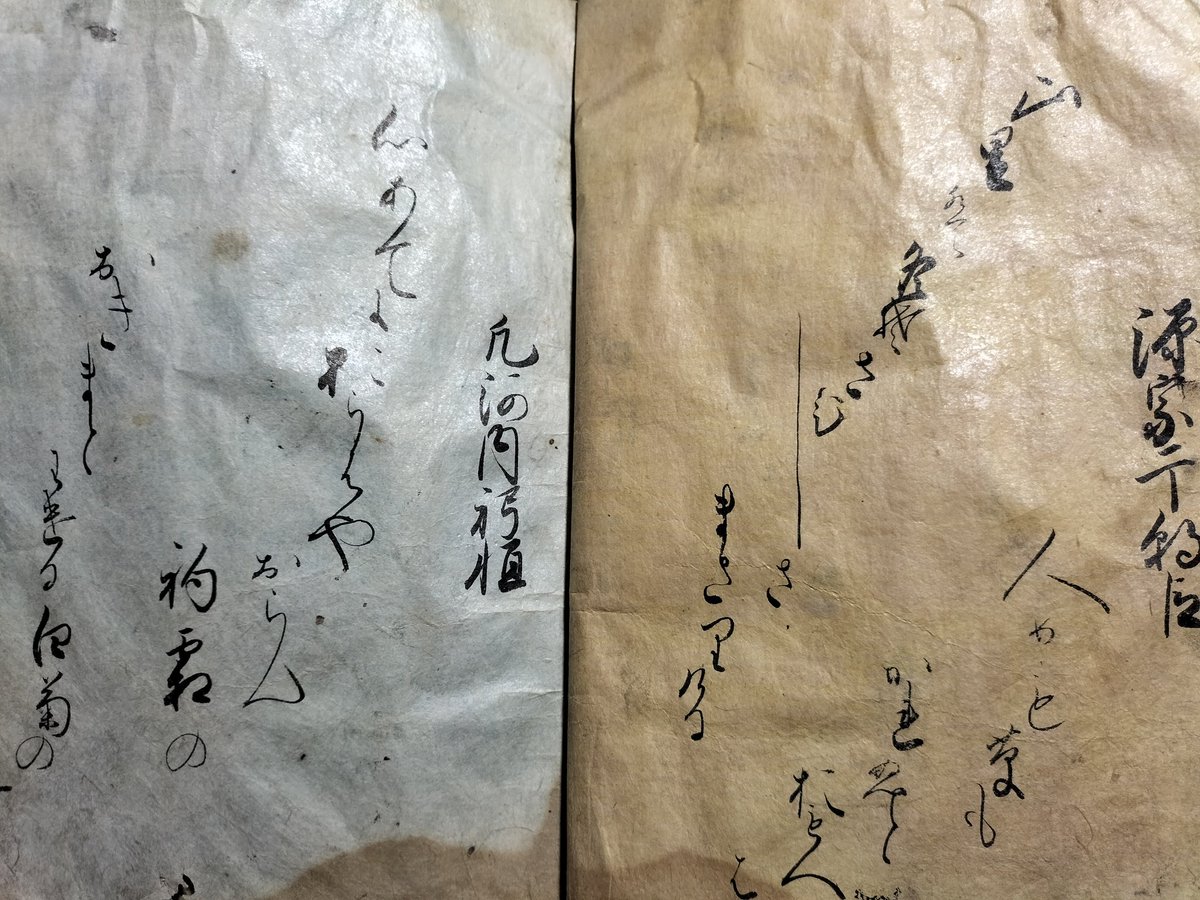 源宗于朝臣
山里は
冬そ
さひ
し
さ
まさりける
人めも草も
かれぬと
おもへ
は
凡河内躬恒
心あてに
おらはや
おらん
初霜の
おきまと
はせる白菊の